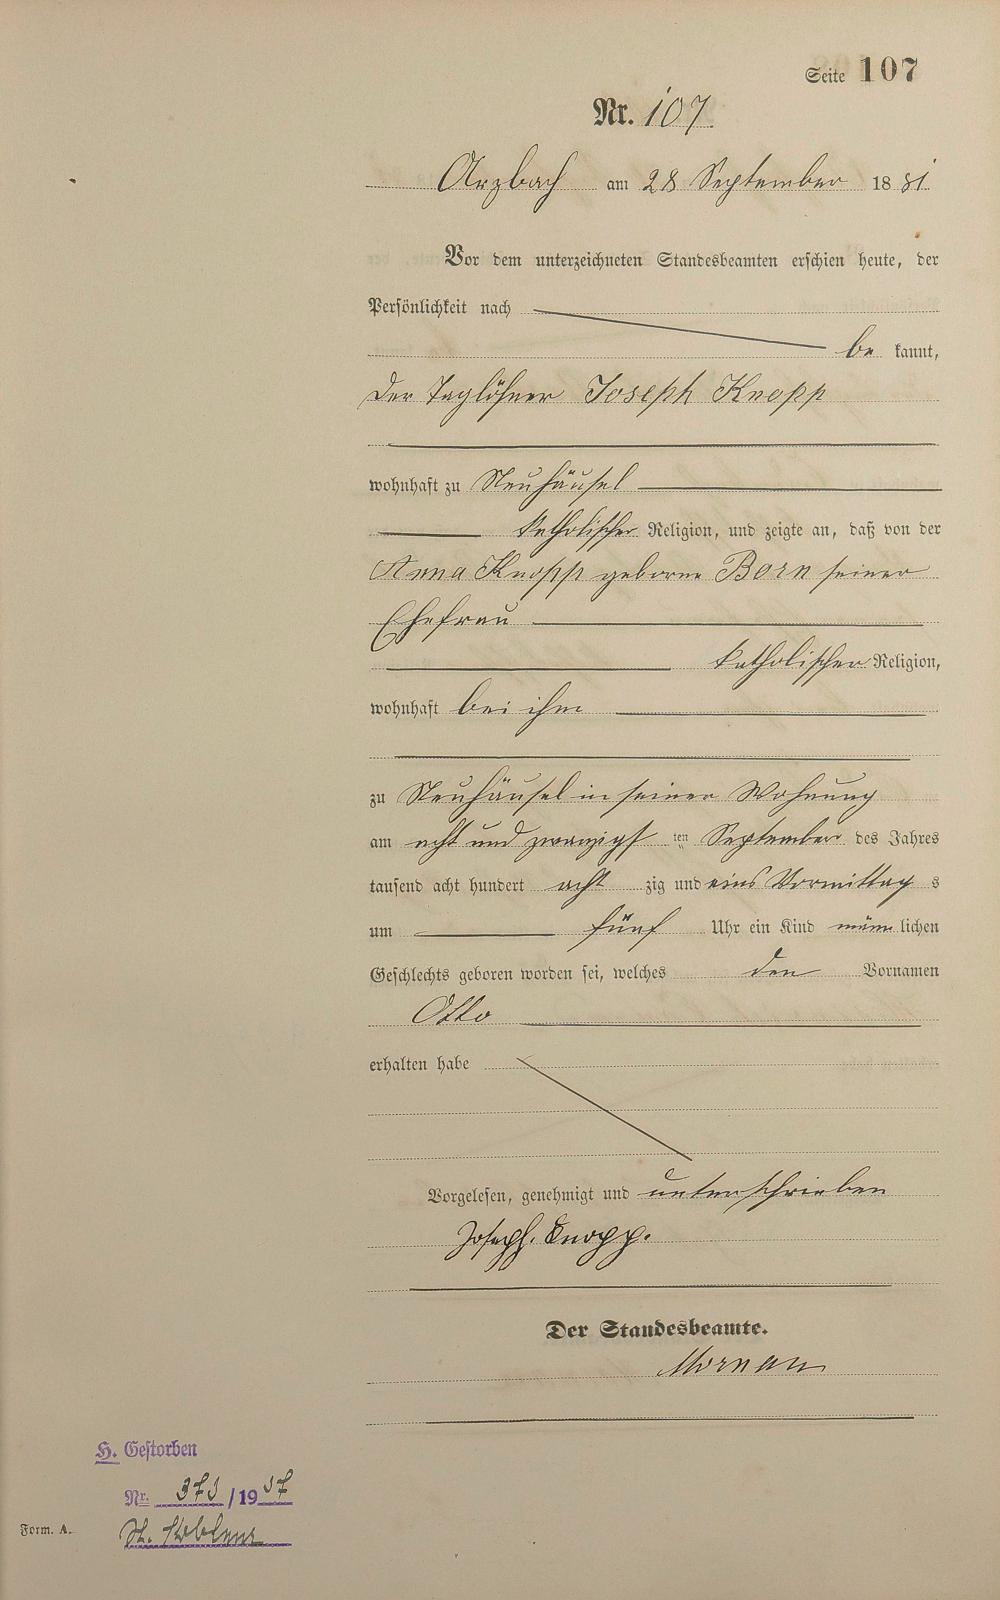 Seite 107
Nr. 107.
Arzbach am 28 September 1881
Vor dem unterzeichneten Standesbeamten erschien heute, der
Persönlichkeit nach
be kannt,
der Taglöhner Joseph Knopp
wohnhaft zu Neuhäusel
katholischer Religion, und zeigte an, daß von der
Anna Knopp geborne Born seiner
Ehefrau
katholischer Religion,
wohnhaft bei ihm
zu Neuhäusel in seiner Wohnung
am acht und zwanzigst ten September des Jahres
tausend acht hundert acht zig und eins Vormittag s
um fünf Uhr ein Kind männlichen
Geschlechts geboren worden sei, welches den Vornamen
Otto
erhalten habe
Vorgelesen, genehmigt und unterschrieben
Joseph. Knopp.
Der Standesbeamte.
H. Gestorben
Nr. /19
St. Koblenz
Form. A.